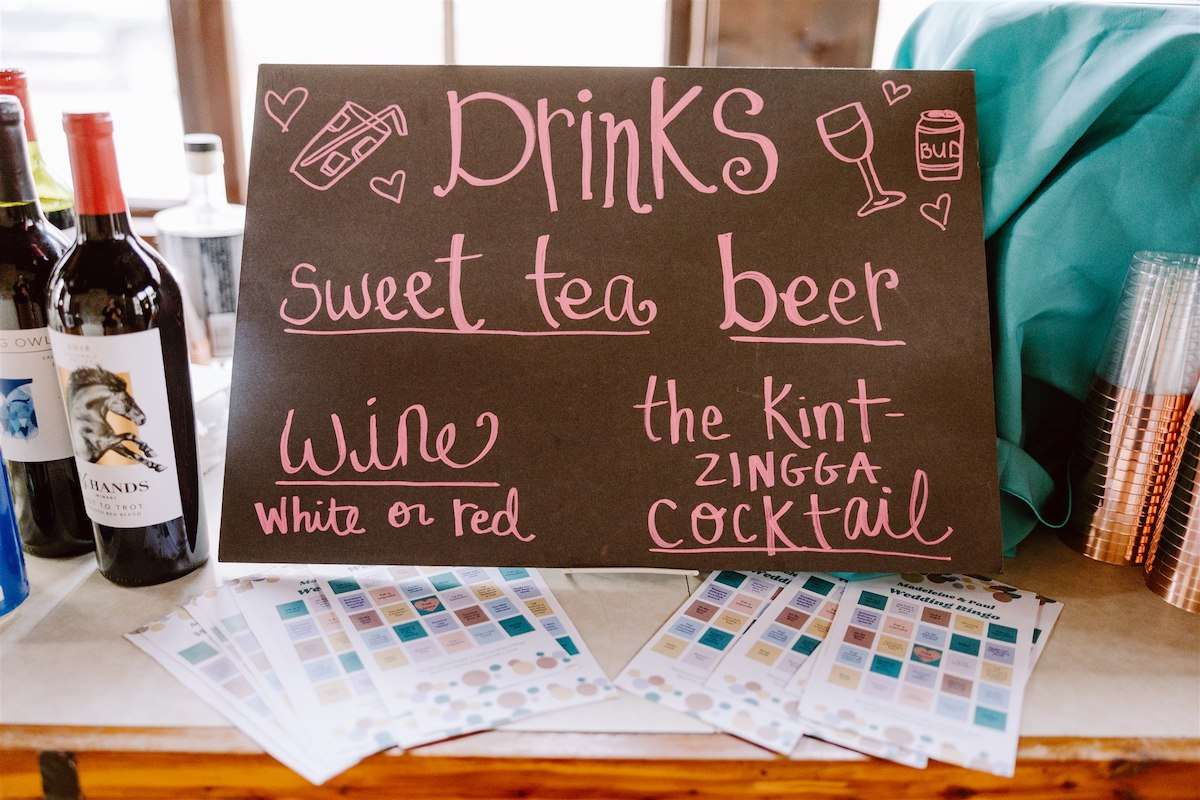 Drinks
BUD
sweet tea
beer
wine
white or red
the Kint-
ZINGGA
cocktail
G OWL
HANDS
TO TROT
Madeleine & Paul
Wedding Bingo